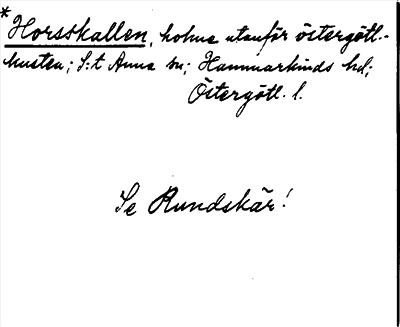 * Horsskallen, holme utanför östergötl.-
kusten; S:t Anna sn; Hammarkinds hd;
Östergötl. l.
Se Rundskär!